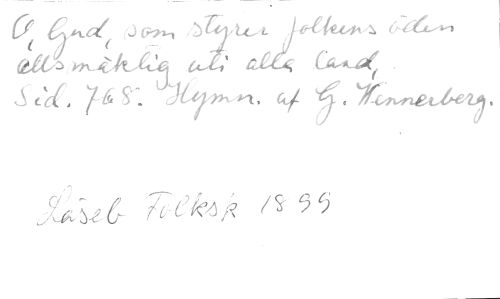 O, Gud, som styrer folkens öden
allsmäktig uti alla land,
Sid. 768. Hymn. af G. Wennerberg.
Läseb Folksk 1899